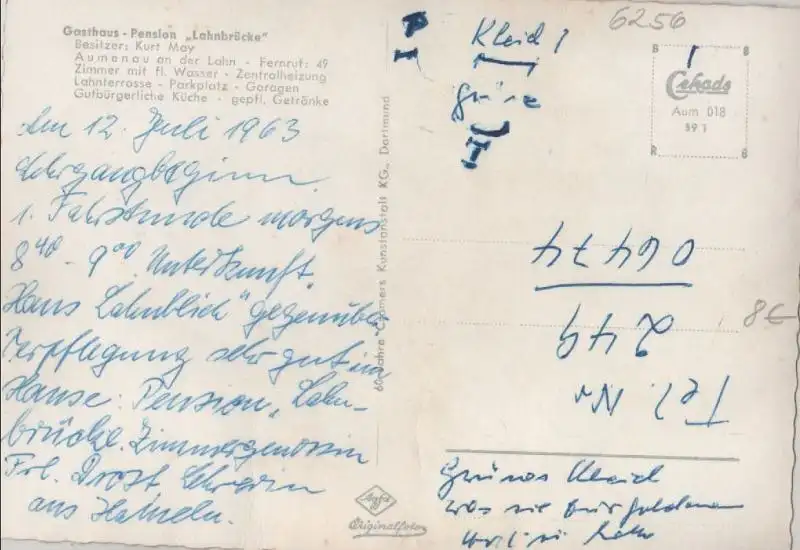 Gasthaus - Pension „Lahnbrücke"
Besitzer: Kurt May
Aumenau an der Lahn - Fernruf: 49
Zimmer mit fl. Wasser - Zentralheizung
Lahnterrasse - Parkplatz - Garagen
Gutbürgerliche Küche - gepfl. Getränke
Am 12. Juli 1963
Lehrgangbeginn.
1. Fahrstunde morgens
8⁴⁰ - 9⁰⁰. Unterkunft
Haus Lahnblick" gegenüber
Verpflegung sehr gut im
Hause: Pension „Lahn-
brücke. Zimmergenossin
Frl. Drost Lehrerin
aus Hameln.
60 Jahre Cramers Kunstanstalt KG., Dortmund
Agfa
Originalfoto
Kleid 1
6256
Cekade
Aum 018
59 1
8€
Tel. Nr
249
06474
Grünes Kleid